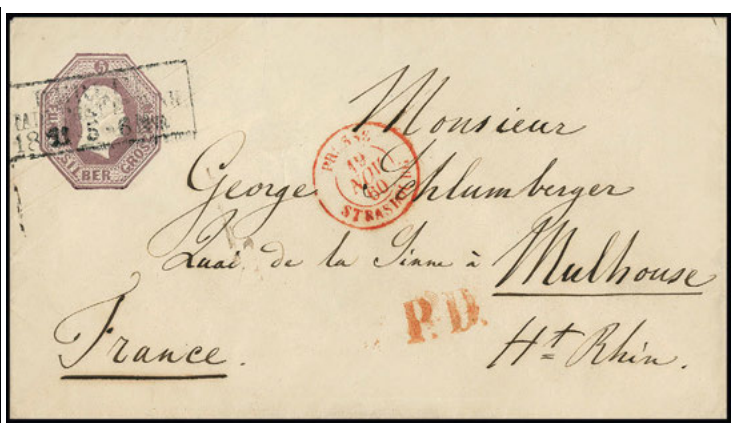 5
SILBER GROSCH
18 11 5-6
PRUSSE
19
AOUT
60
STRASB
Monsieur
George Schlumberger
Quai de la Sinne à Mulhouse
P.D.
France.
Ht Rhin.